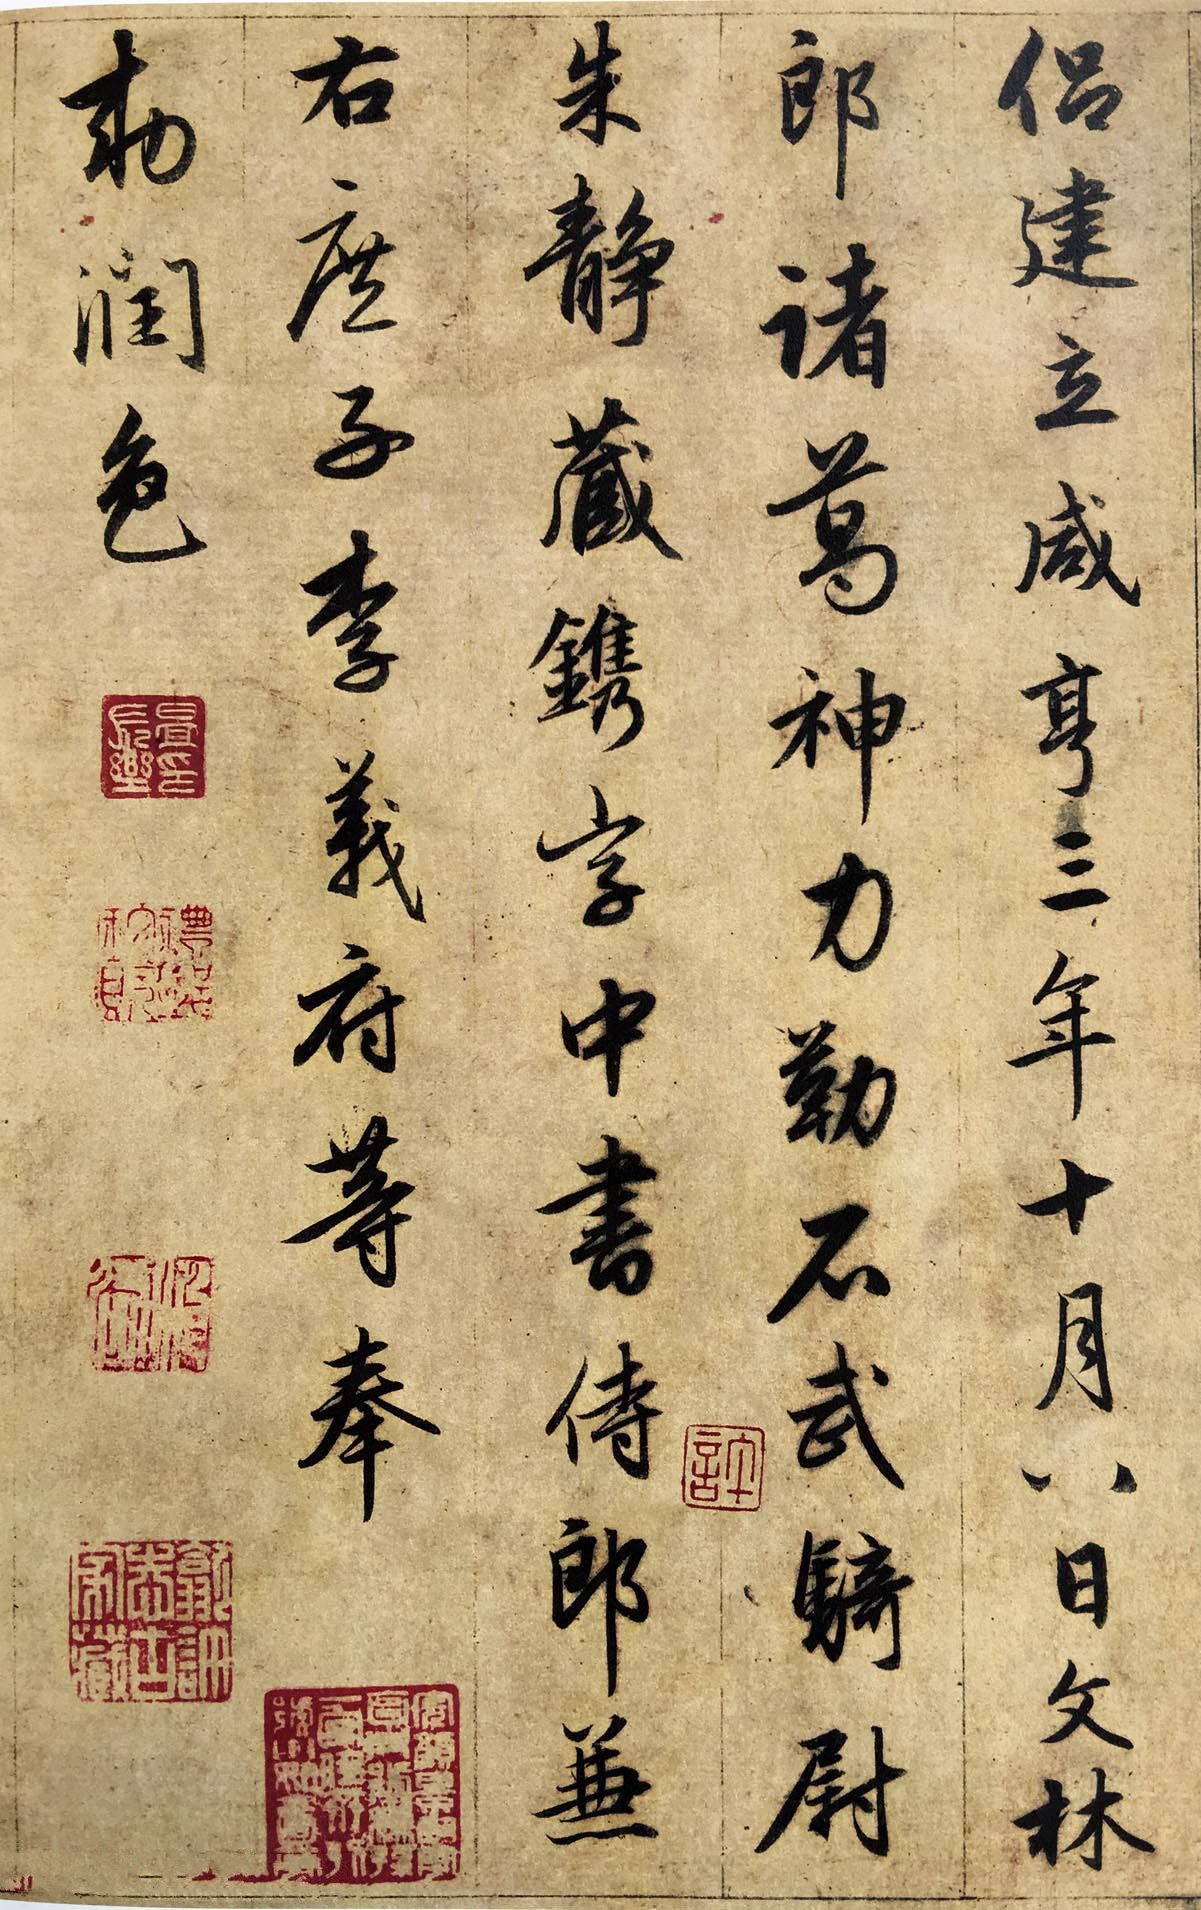 侣建立咸亨三年十月八日文林
郎诸葛神力勒石武骑尉
朱静藏鐫字中書侍郎兼
右庶子李義府等奉
勅润色